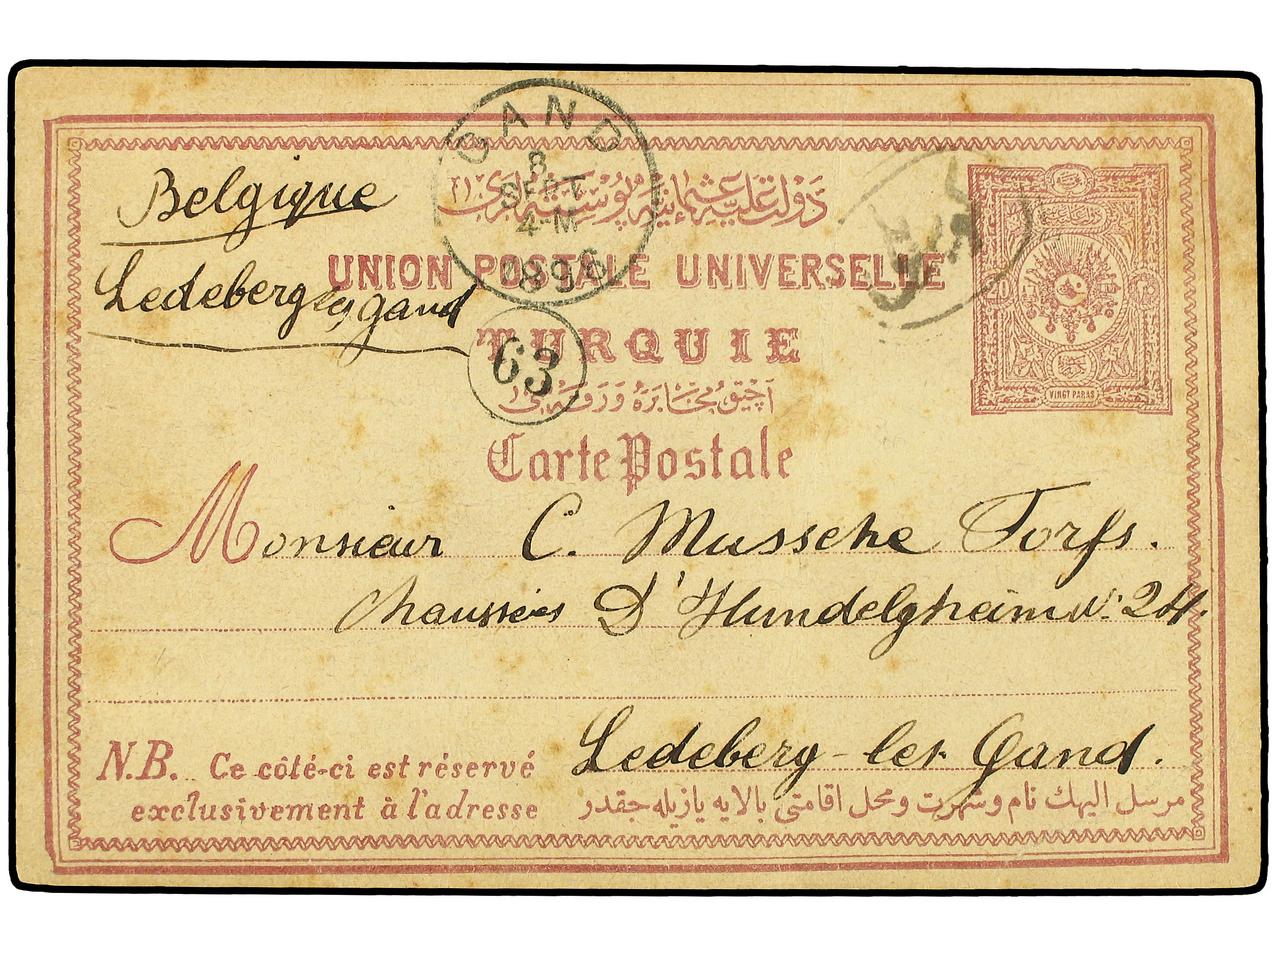 GAND
8
SEPT
4-M
1896
Belgique
دولت عليه عثمانيه پوسته لرى
UNION POSTALE UNIVERSELLE
Ledeberg les gand
TURQUIE
63
20
VINGT PARAS
آچيق مخابره ورقه سى
Carte Postale
Monsieur C. Mussche Torfs.
chaussées D'Hundelgheim N: 24.
Ledeberg-les Gand.
N.B. Ce côté-ci est réservé
exclusivement à l'adresse
مرسل اليهك نام وشهرت ومحل اقامتى بالايه يازيله جقدر